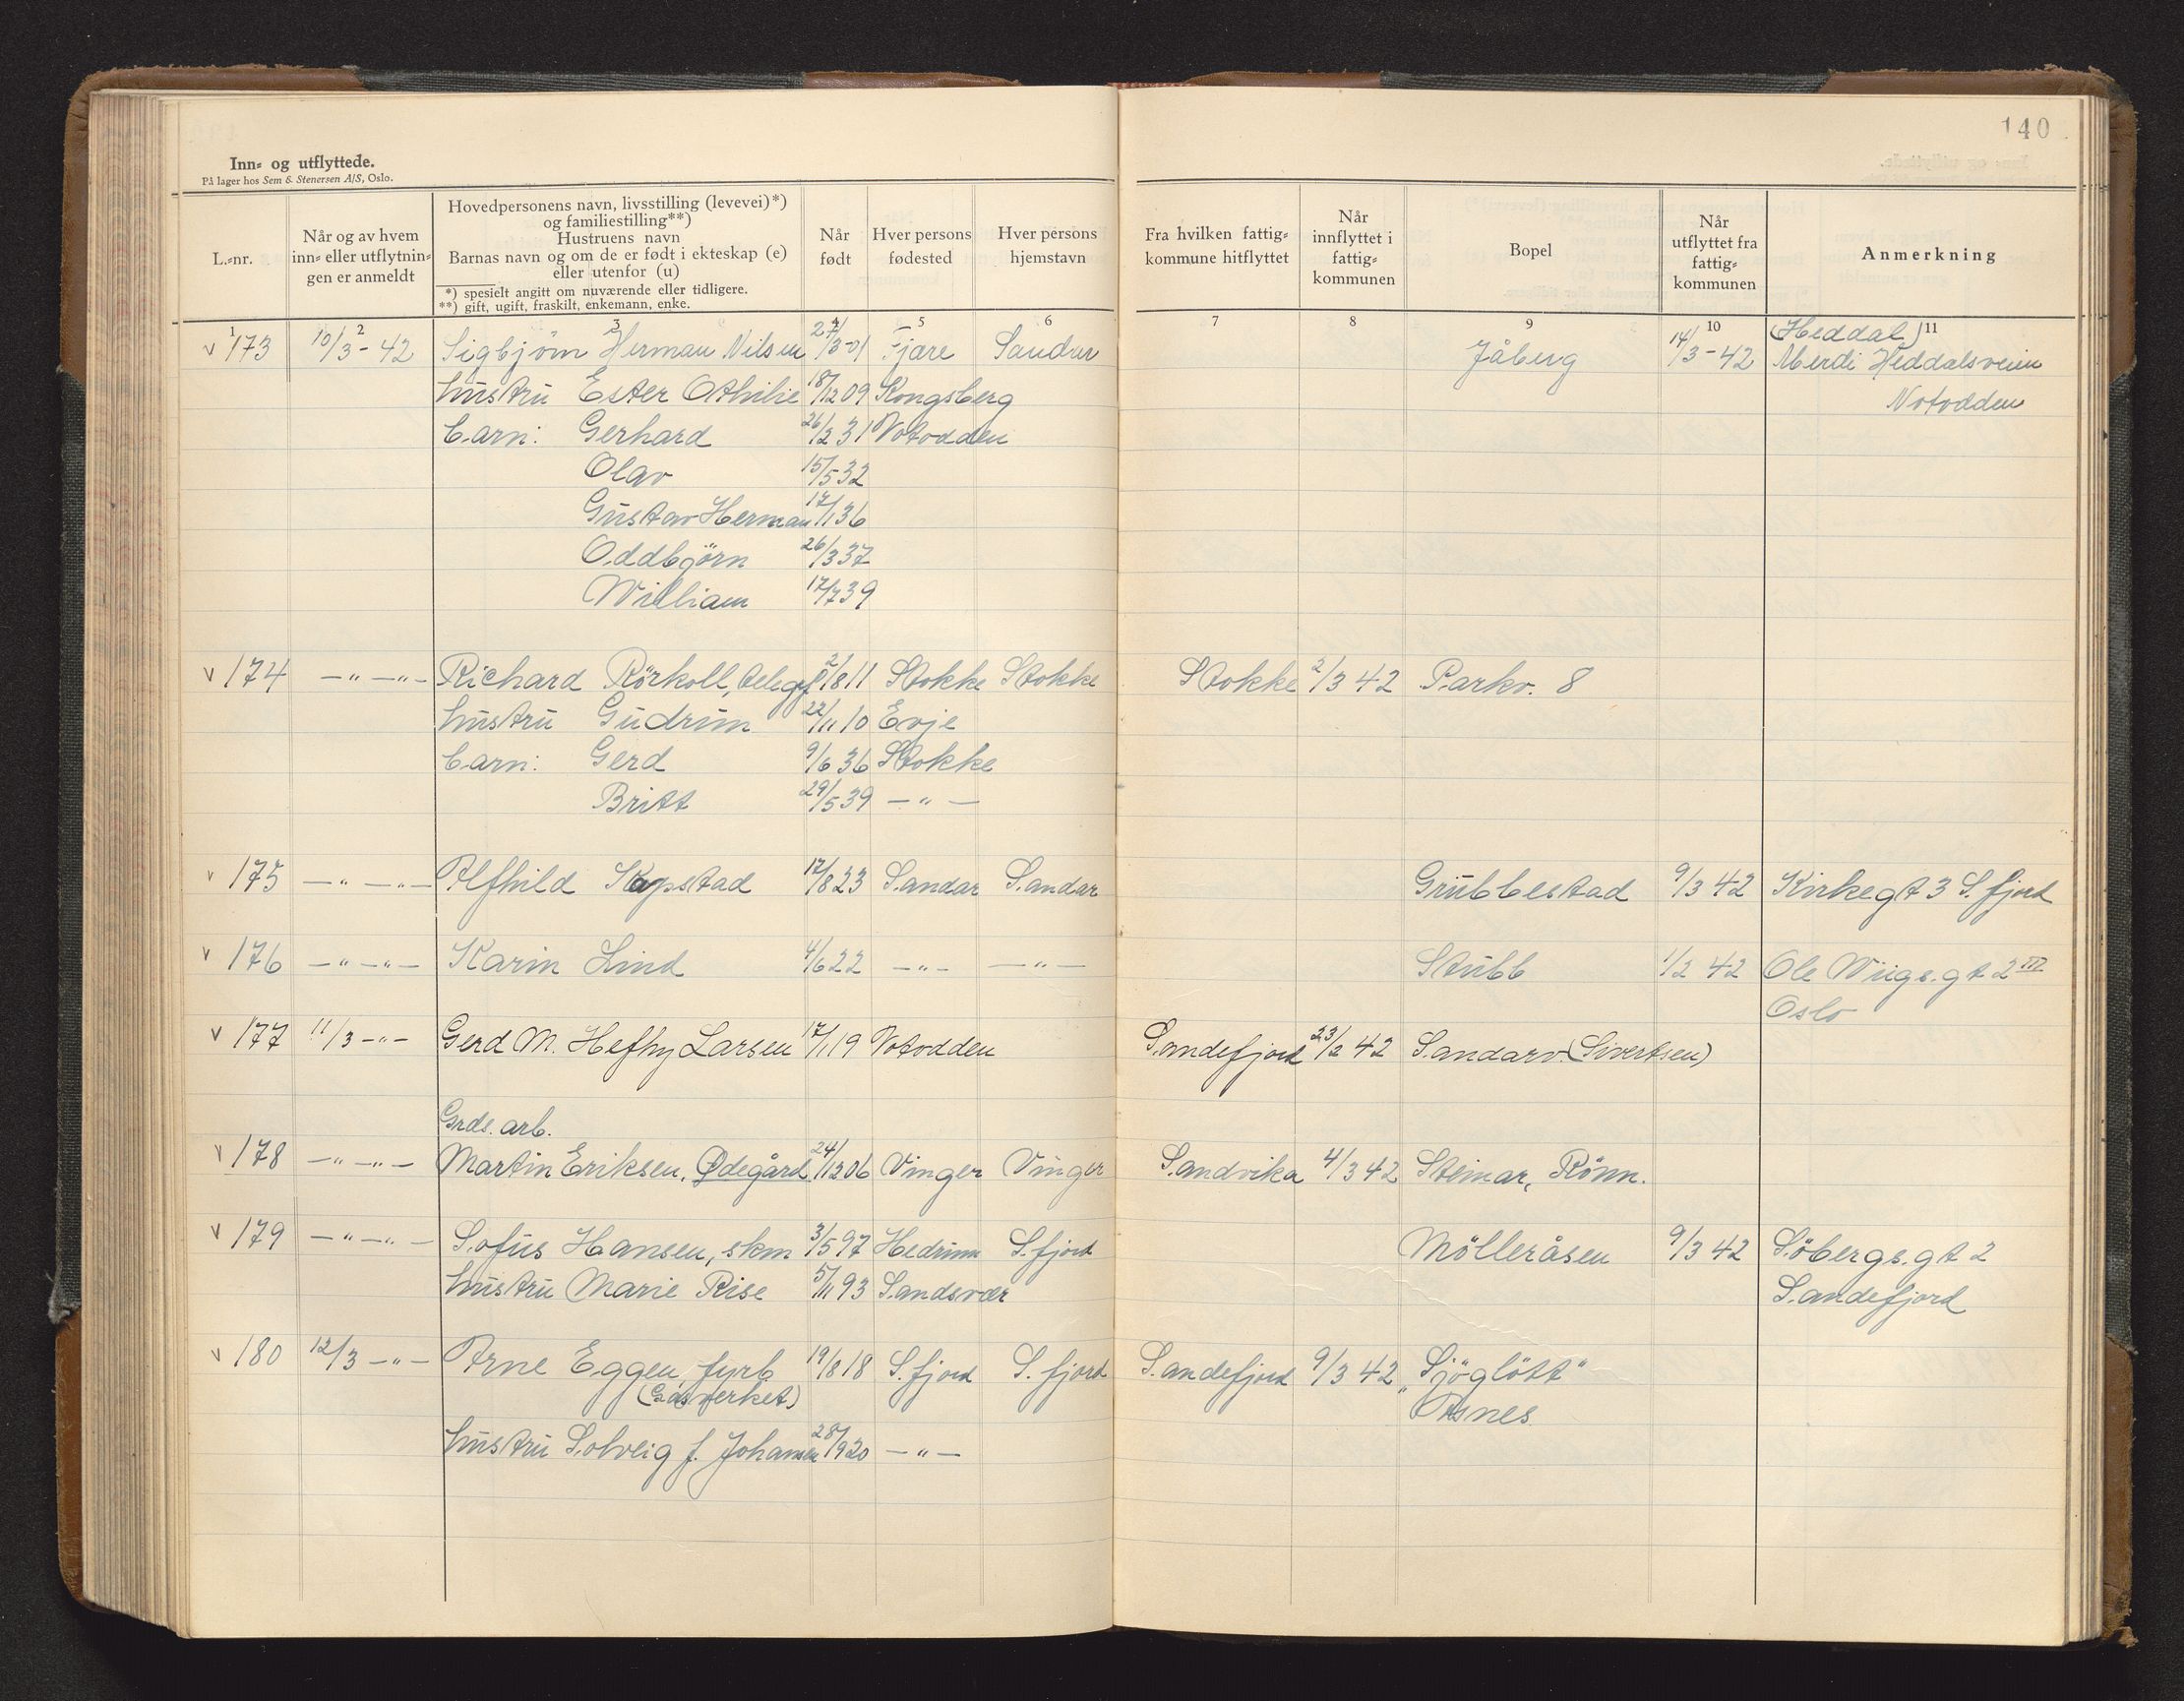 140
Inn- og utflyttede.
På lager hos Sem & Stenersen A/S, Oslo.
L.-nr. | Når og av hvem inn- eller utflytningen er anmeldt | Hovedpersonens navn, livsstilling (levevei)*) og familiestilling**) Hustruens navn Barnas navn og om de er født i ekteskap (e) eller utenfor (u) *) spesielt angitt om nuværende eller tidligere. **) gift, ugift, fraskilt, enkemann, enke. | Når født | Hver persons fødested | Hver persons hjemstavn | Fra hvilken fattigkommune hitflyttet | Når innflyttet i fattigkommunen | Bopel | Når utflyttet fra fattigkommunen | Anmerkning
1 2 3 4 5 6 7 8 9 10 11
(Heddal)
v 173 10/3-42 Sigbjörn Herman Nilsen 27/3-01 Fjære Sandar Jåberg 14/3-42 Merdi Heddalsveien
hustru Ester Othilie 18/12 09 Kongsberg Notodden
barn: Gerhard 26/2 31 Notodden
Olav 15/5 32
Gustav Herman 17/1 36
Oddbjörn 26/3 37
William 17/7 39
v 174 —"—"— Richard Rörkoll, telegf 2/8 11 Stokke Stokke Stokke 2/3 42 Parkv. 8
hustru Gudrun 22/11 10 Evje
barn: Gerd 9/6 36 Stokke
Britt 29/5 39 —"—
v 175 —"—"— Alfhild Kapstad 17/8 23 Sandar Sandar Grubbestad 9/3 42 Kirkegt 3 S.fjord
v 176 —"—"— Karin Lind 4/6 22 —"— —"— Stubb 1/2 42 Ole Wiigs.gt 2 III
Oslo
v 177 11/3 —"— Gerd M. Hefhy Larsen 17/1 19 Notodden Sandefjord 23/2 42 Sandarv. (Sivertsen)
Grds. arb.
v 178 —"—"— Martin Eriksen, Ødegård 24/12 06 Vinger Vinger Sandvika 4/3 42 Steinar, Rönn.
v 179 —"—"— Sofus Hansen, skm 3/5 97 Hedrum S.fjord Mölleråsen 9/3 42 Söbergs.gt 2
hustru Marie Rise 5/11 93 Sandsvær Sandefjord
v 180 12/3 —"— Arne Eggen, fyrb 19/8 18 S.fjord S.fjord Sandefjord 9/3 42 "Sjöglött"
(Gasverket) Asnes
hustru Solveig f. Johansen 28/9 20 —"—